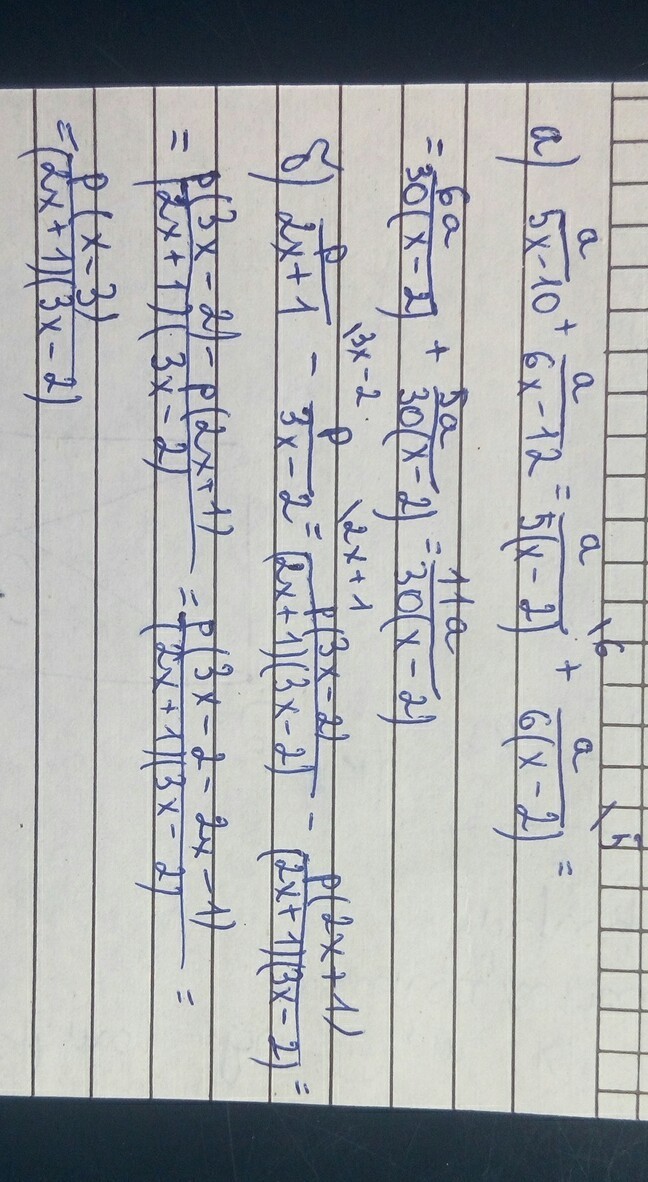 а) a/(5x-10) + a/(6x-12) = a/(5(x-2)) \6 + a/(6(x-2)) \5 =
= 6a/(30(x-2)) + 5a/(30(x-2)) = 11a/(30(x-2))
б) p/(2x+1) \3x-2 - p/(3x-2) \2x+1 = p(3x-2)/((2x+1)(3x-2)) - p(2x+1)/((2x+1)(3x-2)) =
= (p(3x-2)-p(2x+1))/((2x+1)(3x-2)) = p(3x-2-2x-1)/((2x+1)(3x-2)) =
= p(x-3)/((2x+1)(3x-2))